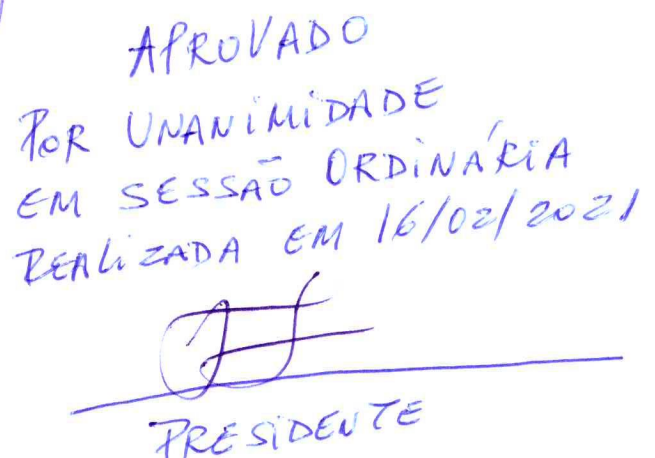 APROVADO
POR UNANIMIDADE
EM SESSÃO ORDINÁRIA
REALIZADA EM 16/02/2021
PRESIDENTE